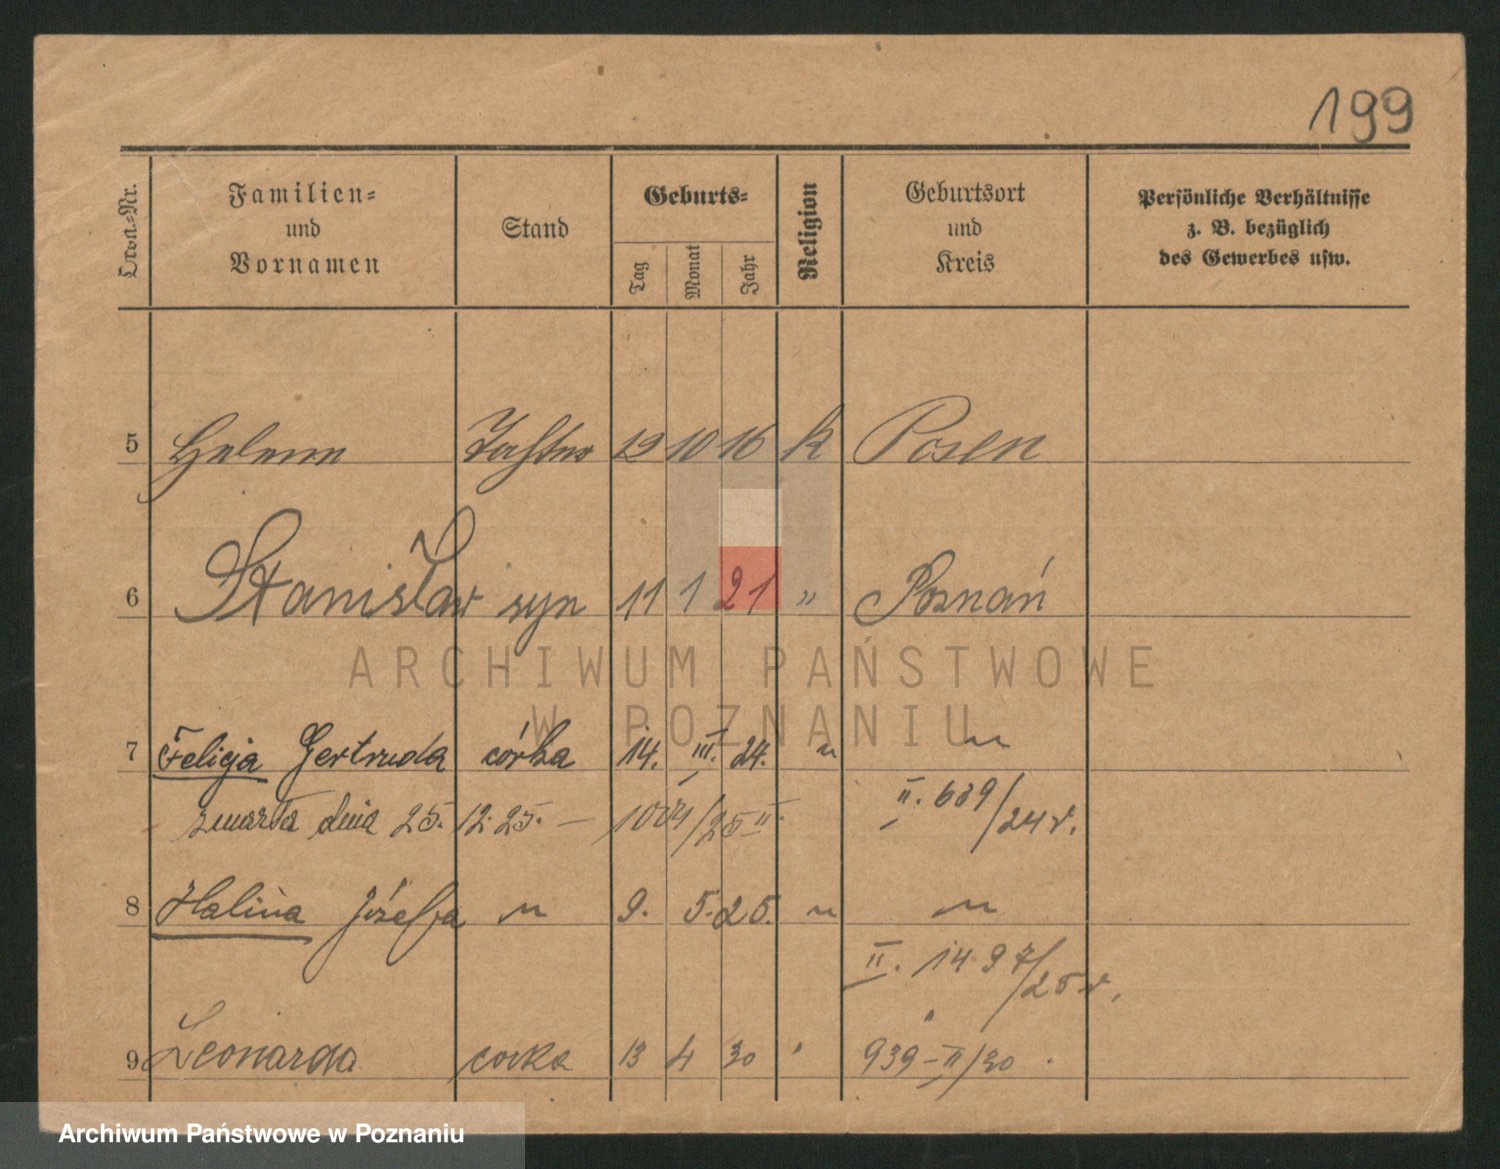 199
Ordn.-Nr.
Familien-
und
Vornamen
Stand
Geburts-
Tag
Monat
Jahr
Religion
Geburtsort
und
Kreis
Persönliche Verhältnisse
z. B. bezüglich
des Gewerbes usw.
5 Helene Tochter 12 10 16 k Posen
6 Stanisław syn 11 1 21 " Poznań
ARCHIWUM PAŃSTWOWE
W POZNANIU
7 Felicja Gertruda córka 14. III. 24. " "
II. 639/24 r.
zmarła dnia 25. 12. 25. — /25 II
8 Halina Józefa " 9. 5. 25. " "
II. 1497/25 r.
9 Leonarda corka 13 4 30 " "
939-II/30
Archiwum Państwowe w Poznaniu